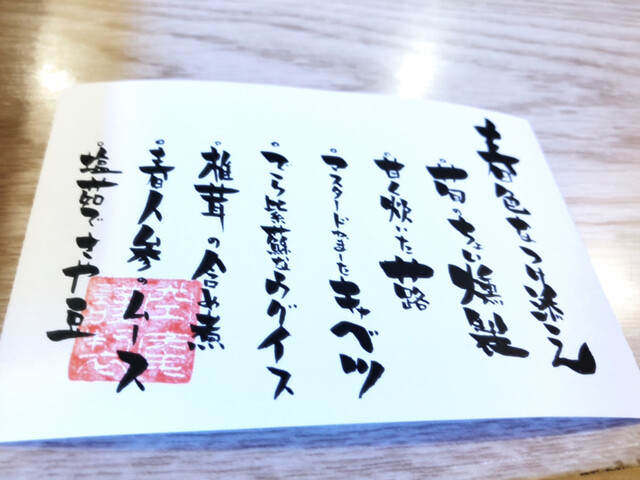 春色なつけ添え
・苺のちょい燻製
・甘く炊いた蕗
・マスタードがまーたキャベツ
・でら紫蘇なウグイス
・椎茸の含め煮
・春人参のムース
・塩茹でさや豆